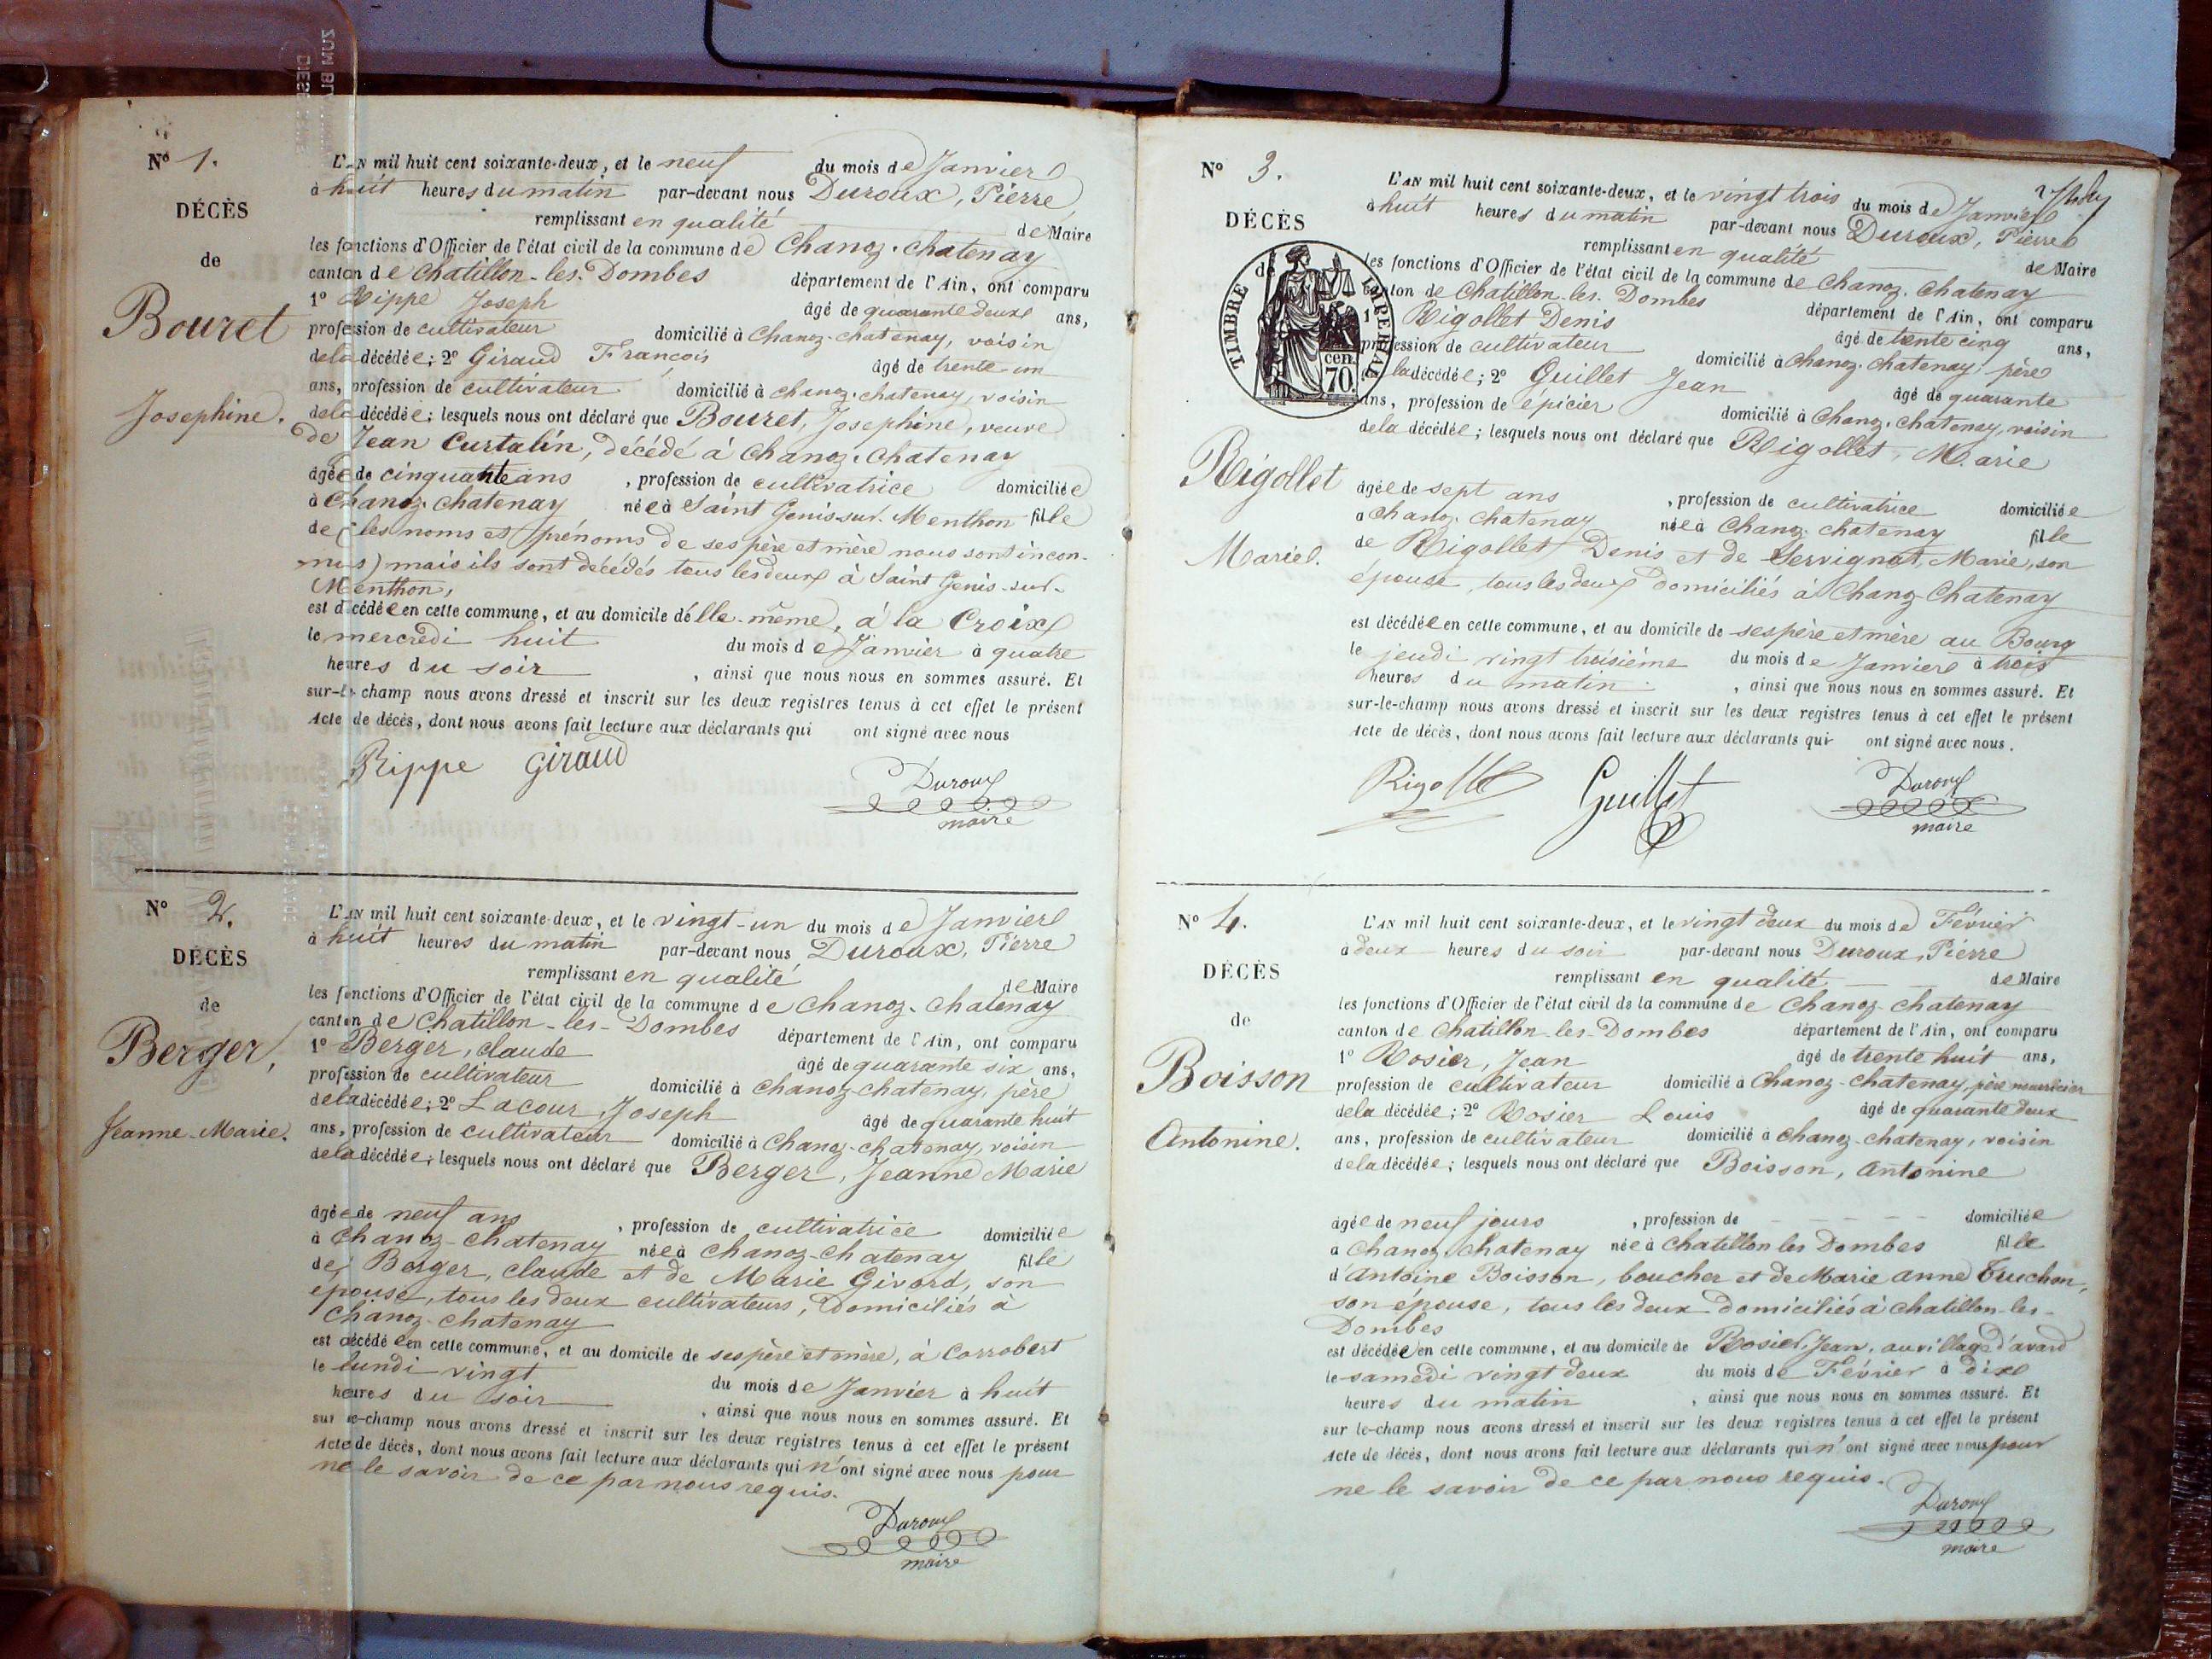 Nº 1.
DÉCÈS
de
Bouret
Josephine.
L'AN mil huit cent soixante-deux, et le neuf du mois de Janvier
à huit heures du matin par-devant nous Duroux, Pierre
remplissant en qualité de Maire
les fonctions d'Officier de l'état civil de la commune de Chanoz-Chatenay
canton de Chatillon-les-Dombes département de l'Ain, ont comparu
1º Rippe Joseph âgé de quarante deux ans,
profession de cultivateur domicilié à Chanoz-Chatenay, voisin
de la décédée; 2º Giraud François âgé de trente-un
ans, profession de cultivateur domicilié à Chanoz-Chatenay, voisin
de la décédée; lesquels nous ont déclaré que Bouret, Josephine, veuve
de Jean Curtalin, décédé à Chanoz-Chatenay
âgée de cinquante ans, profession de cultivatrice domiciliée
à Chanoz-Chatenay née à Saint Genis-sur-Menthon fille
de (les noms et prénoms de ses père et mère nous sont incon-
nus) mais ils sont décédés tous les deux à Saint Genis-sur-
Menthon,
est décédée en cette commune, et au domicile d'elle-même, à la Croix
le mercredi huit du mois de Janvier à quatre
heures du soir, ainsi que nous nous en sommes assuré. Et
sur-le-champ nous avons dressé et inscrit sur les deux registres tenus à cet effet le présent
Acte de décès, dont nous avons fait lecture aux déclarants qui ont signé avec nous
Rippe Giraud Duroux
maire
Nº 2.
DÉCÈS
de
Berger,
Jeanne-Marie.
L'AN mil huit cent soixante-deux, et le vingt-un du mois de Janvier
à huit heures du matin par-devant nous Duroux, Pierre
remplissant en qualité de Maire
les fonctions d'Officier de l'état civil de la commune de Chanoz-Chatenay
canton de Chatillon-les-Dombes département de l'Ain, ont comparu
1º Berger, Claude âgé de quarante six ans,
profession de cultivateur domicilié à Chanoz-Chatenay, père
de la décédée; 2º Lacour, Joseph âgé de quarante huit
ans, profession de cultivateur domicilié à Chanoz-Chatenay, voisin
de la décédée; lesquels nous ont déclaré que Berger, Jeanne Marie
âgée de neuf ans, profession de cultivatrice domiciliée
à Chanoz-Chatenay née à Chanoz-Chatenay fille
de Berger, Claude et de Marie Givord, son
épouse, tous les deux cultivateurs, domiciliés à
Chanoz-Chatenay
est décédée en cette commune, et au domicile de ses père et mère, à Corrobert
le lundi vingt du mois de Janvier à huit
heures du soir, ainsi que nous nous en sommes assuré. Et
sur le-champ nous avons dressé et inscrit sur les deux registres tenus à cet effet le présent
Acte de décès, dont nous avons fait lecture aux déclarants qui n'ont signé avec nous pour
ne le savoir de ce par nous requis.
Duroux
maire
Nº 3.
DÉCÈS
TIMBRE IMPÉRIAL
cen.
70.
Rigollet
Marie.
L'AN mil huit cent soixante-deux, et le vingt trois du mois de Janvier
à huit heures du matin par-devant nous Duroux, Pierre
remplissant en qualité de Maire
les fonctions d'Officier de l'état civil de la commune de Chanoz-Chatenay
canton de Chatillon-les-Dombes département de l'Ain, ont comparu
1º Rigollet Denis âgé de trente cinq ans,
profession de cultivateur domicilié à Chanoz-Chatenay, père
de la décédée; 2º Guillet Jean âgé de quarante
ans, profession de épicier domicilié à Chanoz-Chatenay, voisin
de la décédée; lesquels nous ont déclaré que Rigollet, Marie
âgée de sept ans, profession de cultivatrice domiciliée
à Chanoz-Chatenay née à Chanoz-Chatenay fille
de Rigollet Denis et de Servignat, Marie, son
épouse, tous les deux domiciliés à Chanoz-Chatenay
est décédée en cette commune, et au domicile de ses père et mère au Bourg
le jeudi vingt troisième du mois de Janvier à trois
heures du matin, ainsi que nous nous en sommes assuré. Et
sur-le-champ nous avons dressé et inscrit sur les deux registres tenus à cet effet le présent
Acte de décès, dont nous avons fait lecture aux déclarants qui ont signé avec nous.
Rigollet Guillet Duroux
maire
Nº 4.
DÉCÈS
de
Boisson
Antonine.
L'AN mil huit cent soixante-deux, et le vingt deux du mois de Février
à deux heures du soir par-devant nous Duroux, Pierre
remplissant en qualité de Maire
les fonctions d'Officier de l'état civil de la commune de Chanoz-Chatenay
canton de Chatillon-les-Dombes département de l'Ain, ont comparu
1º Rosier, Jean âgé de trente huit ans,
profession de cultivateur domicilié à Chanoz-Chatenay, père nourricier
de la décédée; 2º Rosier Louis âgé de quarante deux
ans, profession de cultivateur domicilié à Chanoz-Chatenay, voisin
de la décédée; lesquels nous ont déclaré que Boisson, Antonine
âgée de neuf jours, profession de domiciliée
à Chanoz-Chatenay née à Chatillon les Dombes fille
d'Antoine Boisson, boucher et de Marie Anne Truchon,
son épouse, tous les deux domiciliés à Chatillon-les-
Dombes
est décédée en cette commune, et au domicile de Rosier, Jean, au village d'avard
le samedi vingt deux du mois de Février à dix
heures du matin, ainsi que nous nous en sommes assuré. Et
sur le-champ nous avons dressé et inscrit sur les deux registres tenus à cet effet le présent
Acte de décès, dont nous avons fait lecture aux déclarants qui n'ont signé avec nous pour
ne le savoir de ce par nous requis.
Duroux
maire